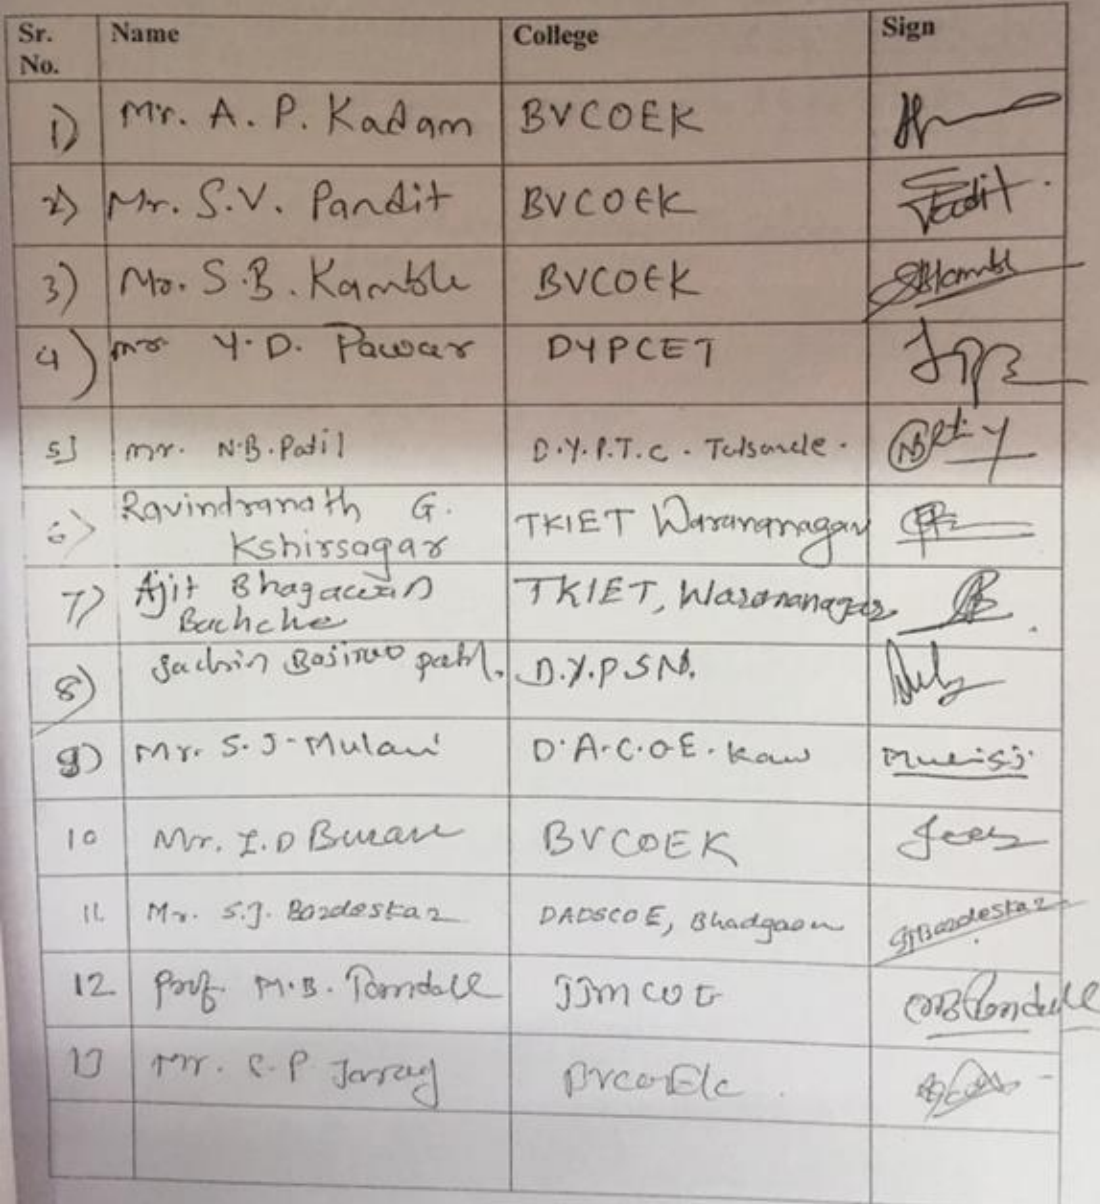 Sr. No. Name College Sign
1) Mr. A. P. Kadam BVCOEK
2) Mr. S.V. Pandit BVCOEK
3) Mr. S.B. Kamble BVCOEK SBKamble
4) mr Y.D. Pawar DYPCET
5] mr. N.B. Patil D.Y.P.T.C. Talsande.
6) Ravindranath G. TKIET Warananagar
Kshirsagar
7) Ajit Bhagawan TKIET, Warananagar
Bachche
8) Sachin patil. D.Y.P S N.
9) Mr. S.J. Mulani D.A.C.O.E. Karad
10 Mr. I.D Buran BVCOEK
11. Mr. S.J. Bardeskar DADSCOE, Bhadgaon SJBardeskar
12 Prof. M.B. Tamdale JJMCOE
13 Mr. C.P Jarag BVCOEK